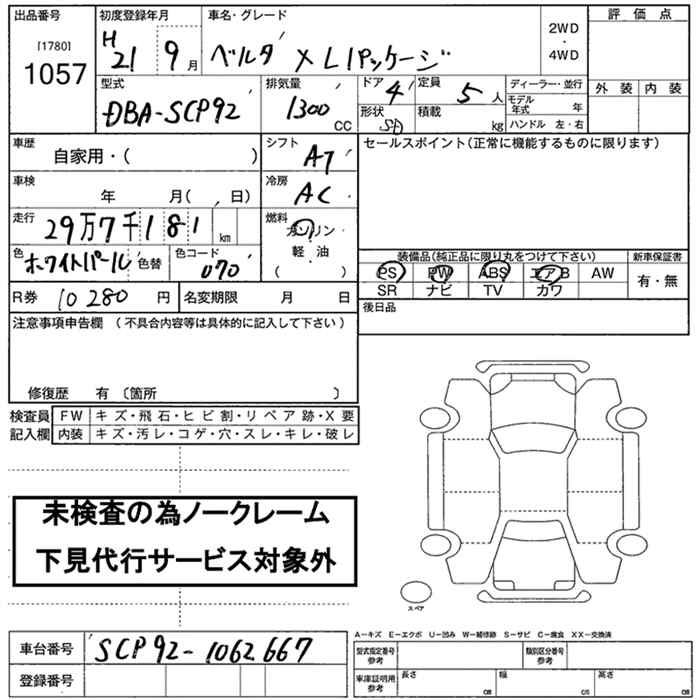 出品番号 初度登録年月 車名・グレード 評価点
[1780] H 2WD
1057 21 9月 ベルタ XLパッケージ ・
4WD
型式 排気量 ドア 定員 ディーラー・並行 外装 内装
DBA-SCP92 1300 CC 4 5人 モデル年式 年
形状 SD 積載 kg ハンドル 左・右
車歴 シフト セールスポイント(正常に機能するものに限ります)
自家用・( ) AT
車検 冷房
年 月( , 日) AC
走行 燃料
29万7千181 km ガソリン
色 色コード 軽油
ホワイトパール 色替 070 ( )
装備品(純正品に限り丸をつけて下さい) 新車保証書
PS PW ABS エアB AW 有・無
SR ナビ TV カワ
R券 10280円 名変期限 月 日 後日品
注意事項申告欄 (不具合内容等は具体的に記入して下さい)
修復歴 有 〔箇所 〕
検査員 FW キズ・飛石・ヒビ割・リペア跡・X要
記入欄 内装 キズ・汚レ・コゲ・穴・スレ・キレ・破レ
未検査の為ノークレーム
下見代行サービス対象外
スペア
A-キズ E-エクボ U-凹み W-補修跡 S-サビ C-腐食 XX-交換済
車台番号 SCP92-1062667 型式指定番号 参考 類別区分番号 参考
登録番号 車庫証明用 参考 長さ cm 幅 cm 高さ cm